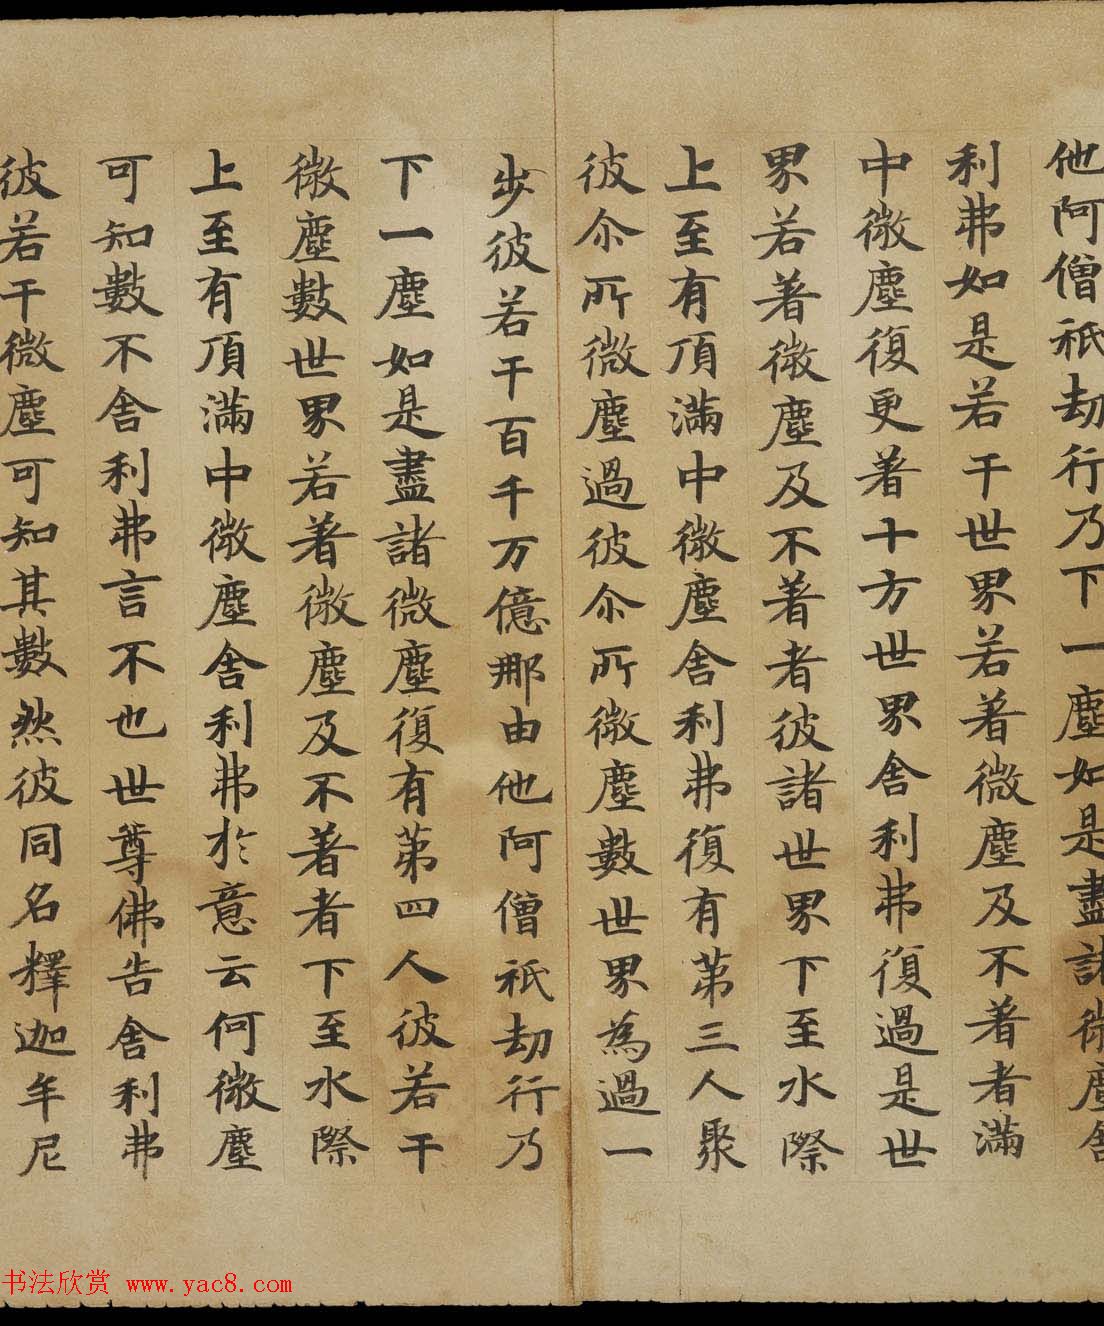 他阿僧祇劫行乃下一塵如是盡諸微塵舍
利弗如是若干世界若著微塵及不著者滿
中微塵復更著十方世界舍利弗復過是世
界若著微塵及不著者彼諸世界下至水際
上至有頂滿中微塵舍利弗復有第三人聚
彼尒所微塵過彼尒所微塵數世界為過一
步彼若干百千万億那由他阿僧祇劫行乃
下一塵如是盡諸微塵復有第四人彼若干
微塵數世界若著微塵及不著者下至水際
上至有頂滿中微塵舍利弗於意云何微塵
可知數不舍利弗言不也世尊佛告舍利弗
彼若干微塵可知其數然彼同名釋迦牟尼
书法欣赏 www.yac8.com